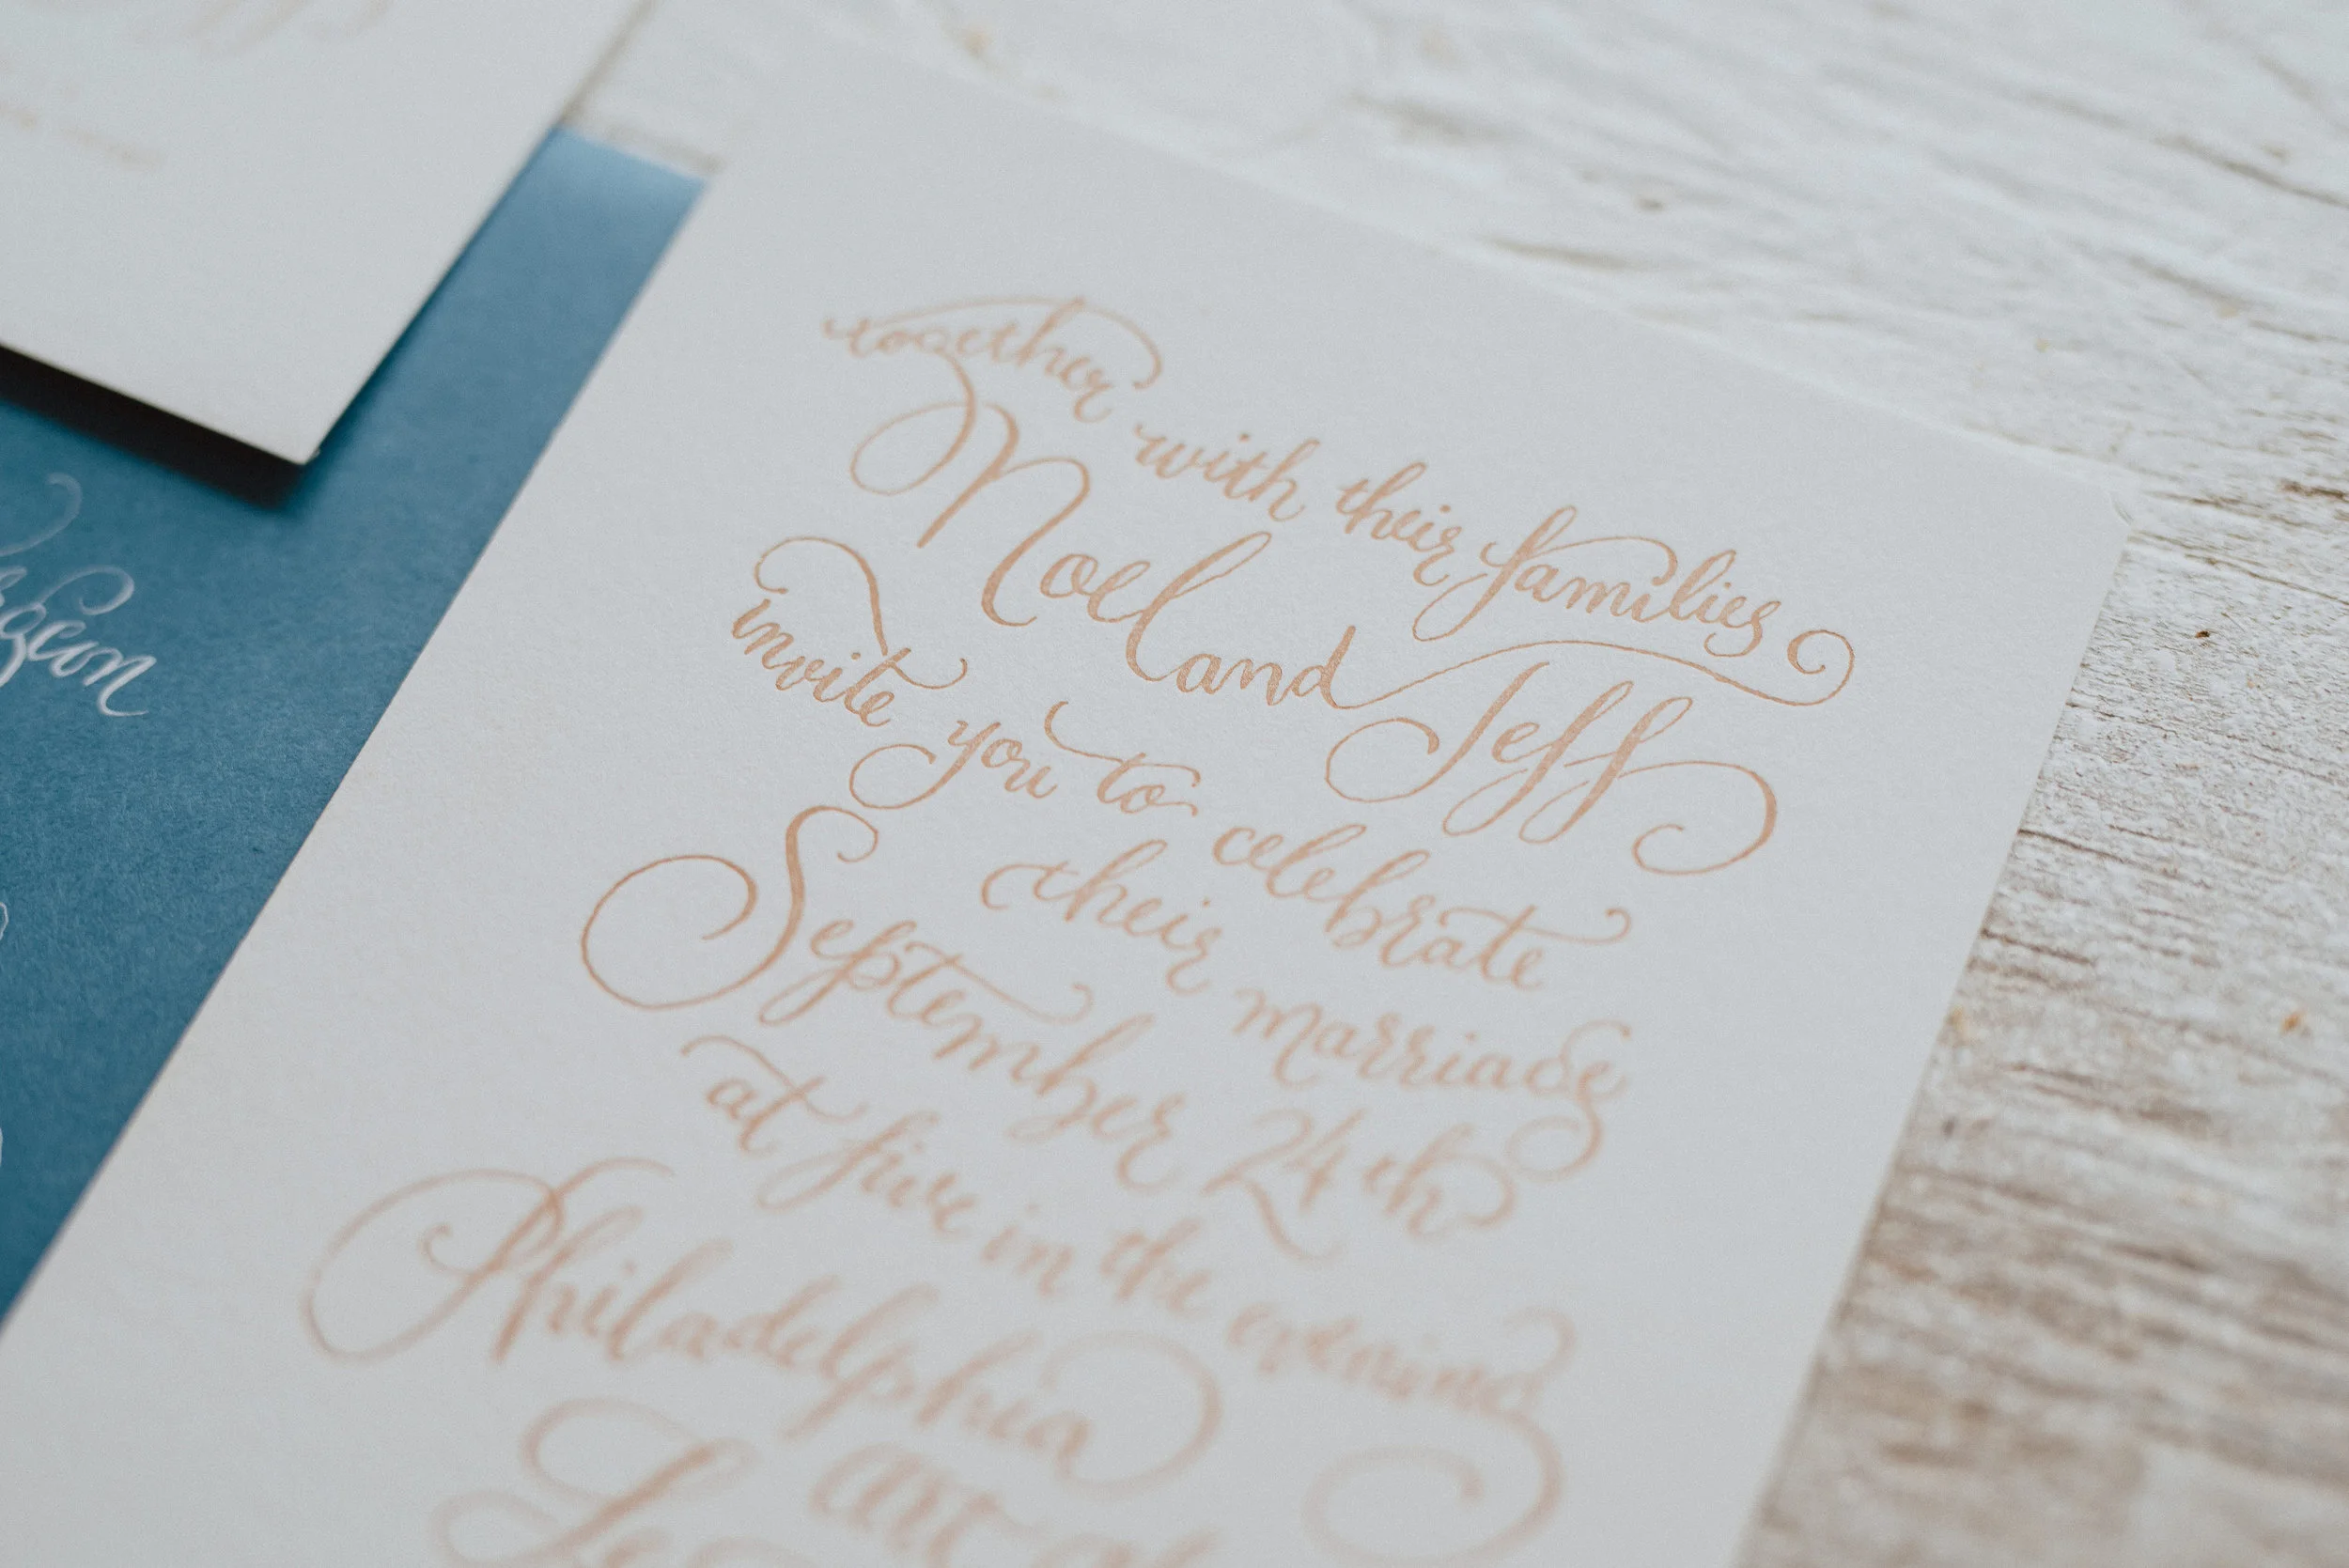 together with their families
Noel and Jeff
invite you to celebrate
their marriage
September 24th
at five in the evening
Philadelphia
art